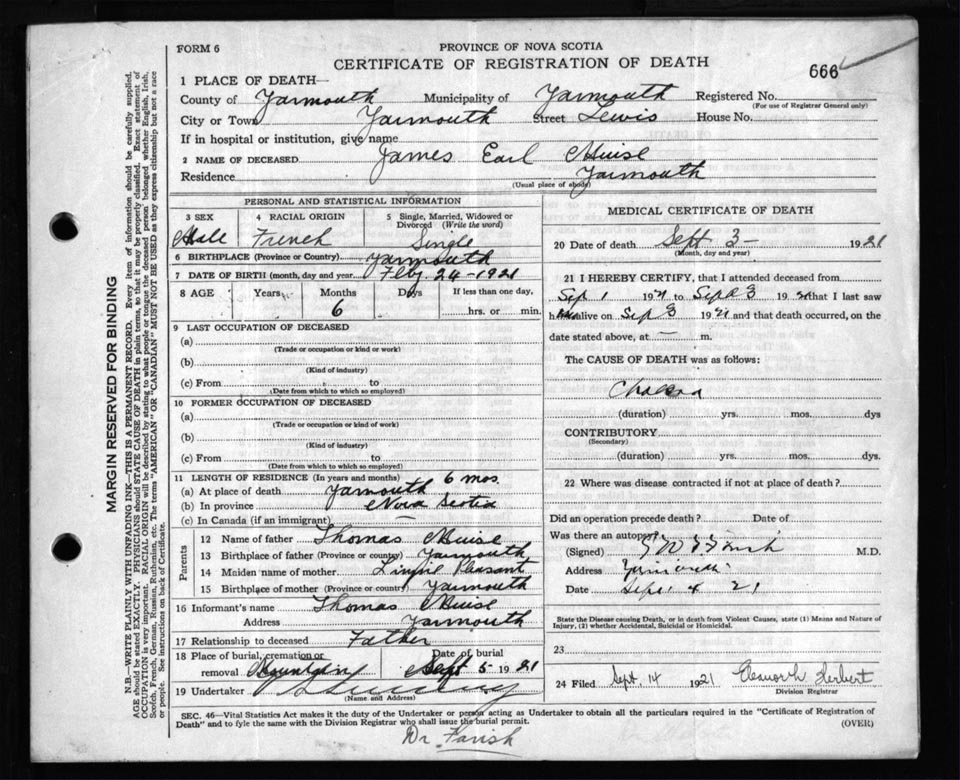 FORM 6
PROVINCE OF NOVA SCOTIA
CERTIFICATE OF REGISTRATION OF DEATH
666
1 PLACE OF DEATH—
County of Yarmouth Municipality of Yarmouth Registered No.
(For use of Registrar General only)
City or Town Yarmouth Street Lewis House No.
If in hospital or institution, give name
2 NAME OF DECEASED James Earl Muise
Residence Yarmouth
(Usual place of abode)
PERSONAL AND STATISTICAL INFORMATION
3 SEX 4 RACIAL ORIGIN 5 Single, Married, Widowed or Divorced (Write the word)
Male French Single
6 BIRTHPLACE (Province or Country) Yarmouth
7 DATE OF BIRTH (month, day and year) Feby 24-1921
8 AGE Years Months Days If less than one day,
6 hrs. or min.
9 LAST OCCUPATION OF DECEASED
(a)
(Trade or occupation or kind of work)
(b)
(Kind of industry)
(c) From to
(Date from which to which so employed)
10 FORMER OCCUPATION OF DECEASED
(a)
(Trade or occupation or kind of work)
(b)
(Kind of industry)
(c) From to
(Date from which to which so employed)
11 LENGTH OF RESIDENCE (In years and months) 6 mos
(a) At place of death Yarmouth
(b) In province Nova Scotia
(c) In Canada (if an immigrant)
Parents
12 Name of father Thomas Muise
13 Birthplace of father (Province or country) Yarmouth
14 Maiden name of mother Pleasant
15 Birthplace of mother (Province or country) Yarmouth
16 Informant's name Thomas Muise
Address Yarmouth
17 Relationship to deceased Father
18 Place of burial, cremation or removal Date of burial Sept 5- 1921
19 Undertaker
(Name and Address)
MEDICAL CERTIFICATE OF DEATH
20 Date of death Sept 3- 1921
(Month, day and year)
21 I HEREBY CERTIFY, that I attended deceased from
Sep 1 1921 to Sept 3 1921 that I last saw
h alive on Sep 3 1921 and that death occurred, on the
date stated above, at — m.
The CAUSE OF DEATH was as follows:
Cholera
(duration) yrs. mos. dys
CONTRIBUTORY
(Secondary)
(duration) yrs. mos. dys.
22 Where was disease contracted if not at place of death?
Did an operation precede death? Date of
Was there an autopsy?
(Signed) M.D.
Address Yarmouth
Date Sept 4 21
State the Disease causing Death, or in death from Violent Causes, state (1) Means and Nature of
Injury, (2) whether Accidental, Suicidal or Homicidal.
23
24 Filed Sept. 14 1921 Herbert
Division Registrar
SEC. 46—Vital Statistics Act makes it the duty of the Undertaker or person acting as Undertaker to obtain all the particulars required in the "Certificate of Registration of
Death" and to fyle the same with the Division Registrar who shall issue the burial permit. (OVER)
Dr. Farish
MARGIN RESERVED FOR BINDING
N.B.—WRITE PLAINLY WITH UNFADING INK—THIS IS A PERMANENT RECORD. Every item of information should be carefully supplied.
AGE should be stated EXACTLY. PHYSICIANS should STATE CAUSE OF DEATH in plain terms, so that it may be properly classified. Exact statement of
OCCUPATION is very important. RACIAL ORIGIN will be described by stating to what people or tongue the deceased person belonged whether English, Irish,
Scotch, French, German, Russian, Ruthenian, etc. The terms "AMERICAN" OR "CANADIAN" MUST NOT BE USED as they express citizenship but not a race
or people. See instructions on back of Certificate.